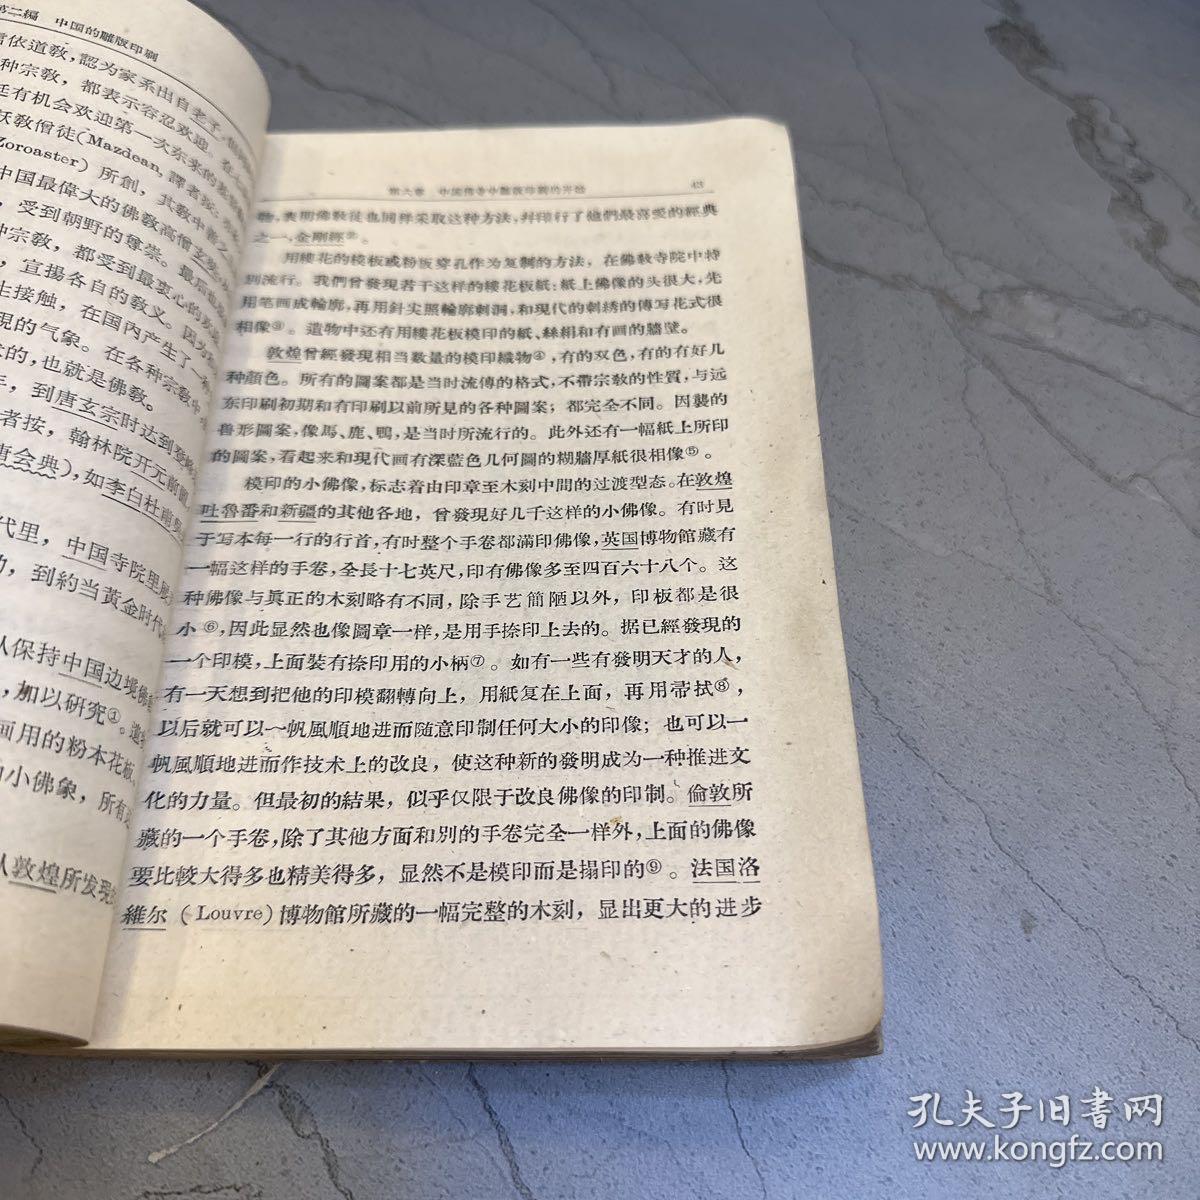 第二編 中国的雕版印刷
信依道敎，認为家系出自老子
种宗敎，都表示容忍欢迎。在
廷有机会欢迎第一次东来的基
祆敎僧徒(Mazdean, 譯者按：
Zoroaster) 所創，其敎中善
中国最偉大的佛敎高僧玄奘
，受到朝野的尊崇。最后
种宗敎，都受到最衷心的
，宣揚各自的敎义。因为
生接触，在国内产生了一
現的气象。在各种宗敎中
大的，也就是佛敎。
年，到唐玄宗时达到登峰
者按，翰林院开元前
唐会典)，如李白杜甫
代里，中国寺院里
，到約当黃金时代
从保持中国边境佛
，加以研究①。
画用的粉本花板
的小佛象，所有
从敦煌所发現
第六章 中国佛寺中雕版印刷的开始 43
物，表明佛敎徒也同样采取这种方法，幷印行了他們最喜爱的經典
之一，金剛經②。
用縷花的模板或粉板穿孔作为复制的方法，在佛敎寺院中特
別流行。我們曾發現若干这样的縷花板紙：紙上佛像的头很大，先
用笔画成輪廓，再用針实照輪廓刺洞，和現代的刺綉的傳写花式很
相像③。遺物中还有用縷花板模印的紙、絲絹和有画的牆壁。
敦煌曾經發現相当数量的模印織物④，有的双色，有的有好几
种顏色。所有的圖案都是当时流傳的格式，不帶宗敎的性質，与远
东印刷初期和有印刷以前所見的各种圖案；都完全不同。因襲的
兽形圖案，像馬、鹿、鴨，是当时所流行的。此外还有一幅紙上所印
的圖案，看起来和現代画有深藍色几何圖的糊牆厚紙很相像⑤。
模印的小佛像，标志着由印章至木刻中間的过渡型态。在敦煌
吐魯番和新疆的其他各地，曾發現好几千这样的小佛像。有时見
于写本每一行的行首，有时整个手卷都滿印佛像，英国博物館藏有
一幅这样的手卷，全長十七英尺，印有佛像多至四百六十八个。这
种佛像与眞正的木刻略有不同，除手艺簡陋以外，印板都是很
小⑥，因此显然也像圖章一样，是用手捺印上去的。据已經發現的
一个印模，上面裝有捺印用的小柄⑦。如有一些有發明天才的人，
有一天想到把他的印模翻轉向上，用紙复在上面，再用帚拭⑧，
以后就可以一帆風順地进而随意印制任何大小的印像；也可以一
帆風順地进而作技术上的改良，使这种新的發明成为一种推进文
化的力量。但最初的結果，似乎仅限于改良佛像的印制。倫敦所
藏的一个手卷，除了其他方面和別的手卷完全一样外，上面的佛像
要比較大得多也精美得多，显然不是模印而是搨印的⑨。法国洛
維尔 (Louvre) 博物館所藏的一幅完整的木刻，显出更大的进步
孔夫子旧书网
www.kongfz.com